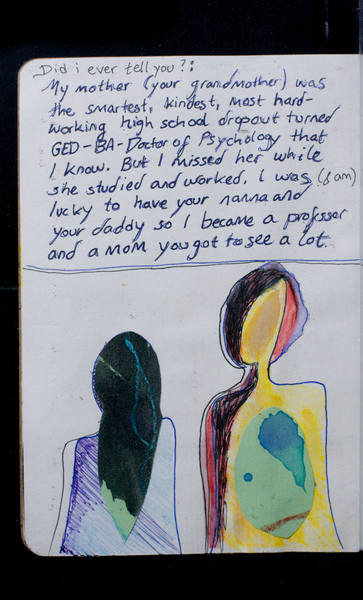 Did i ever tell you?:
My mother (your grandmother) was
the smartest, kindest, most hard-
working high school dropout turned
GED-BA-Doctor of Psychology that
I know. But I missed her while
she studied and worked. I was (& am)
lucky to have your nanna and
your daddy so I became a professor
and a MOM you got to see a lot.